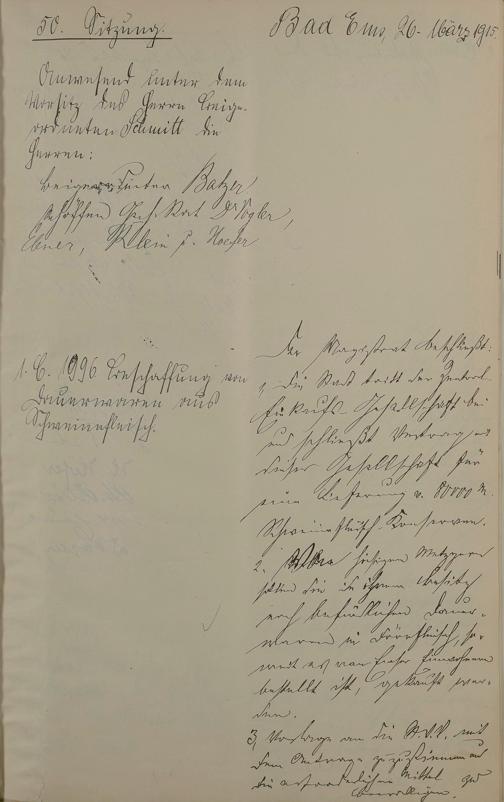 50. Sitzung.
Bad Ems, 26. März 1915.
Anwesend unter dem
Vorsitz des Herrn Beige-
ordneten Schmitt die
Herren:
Beigeordneter Balzer
Schöffen Geh. Rat Dr Vogler,
Ebner, Klein u.
1. C. 1996 Beschaffung von
Dauerwaren aus
Schweinefleisch.
Der Magistrat beschließt:
1, Die Stadt tritt der Zentral-
Einkaufs-Gesellschaft bei
und schließt Vertrag mit
dieser Gesellschaft für
eine Lieferung v. 80000 M.
Schweinefleisch-Konserven.
2. hiesigen Metzgern
sollen die in ihrem Besitze
noch befindlichen Dauer-
waren in Dörrfleisch, so-
weit es von hieser Einwohnern
bestellt ist, gekauft wer-
den.
3, Vorlage an die St.V.V. mit
dem Antrage zuzustimmen und
die erforderlichen Mittel zu
bewilligen.